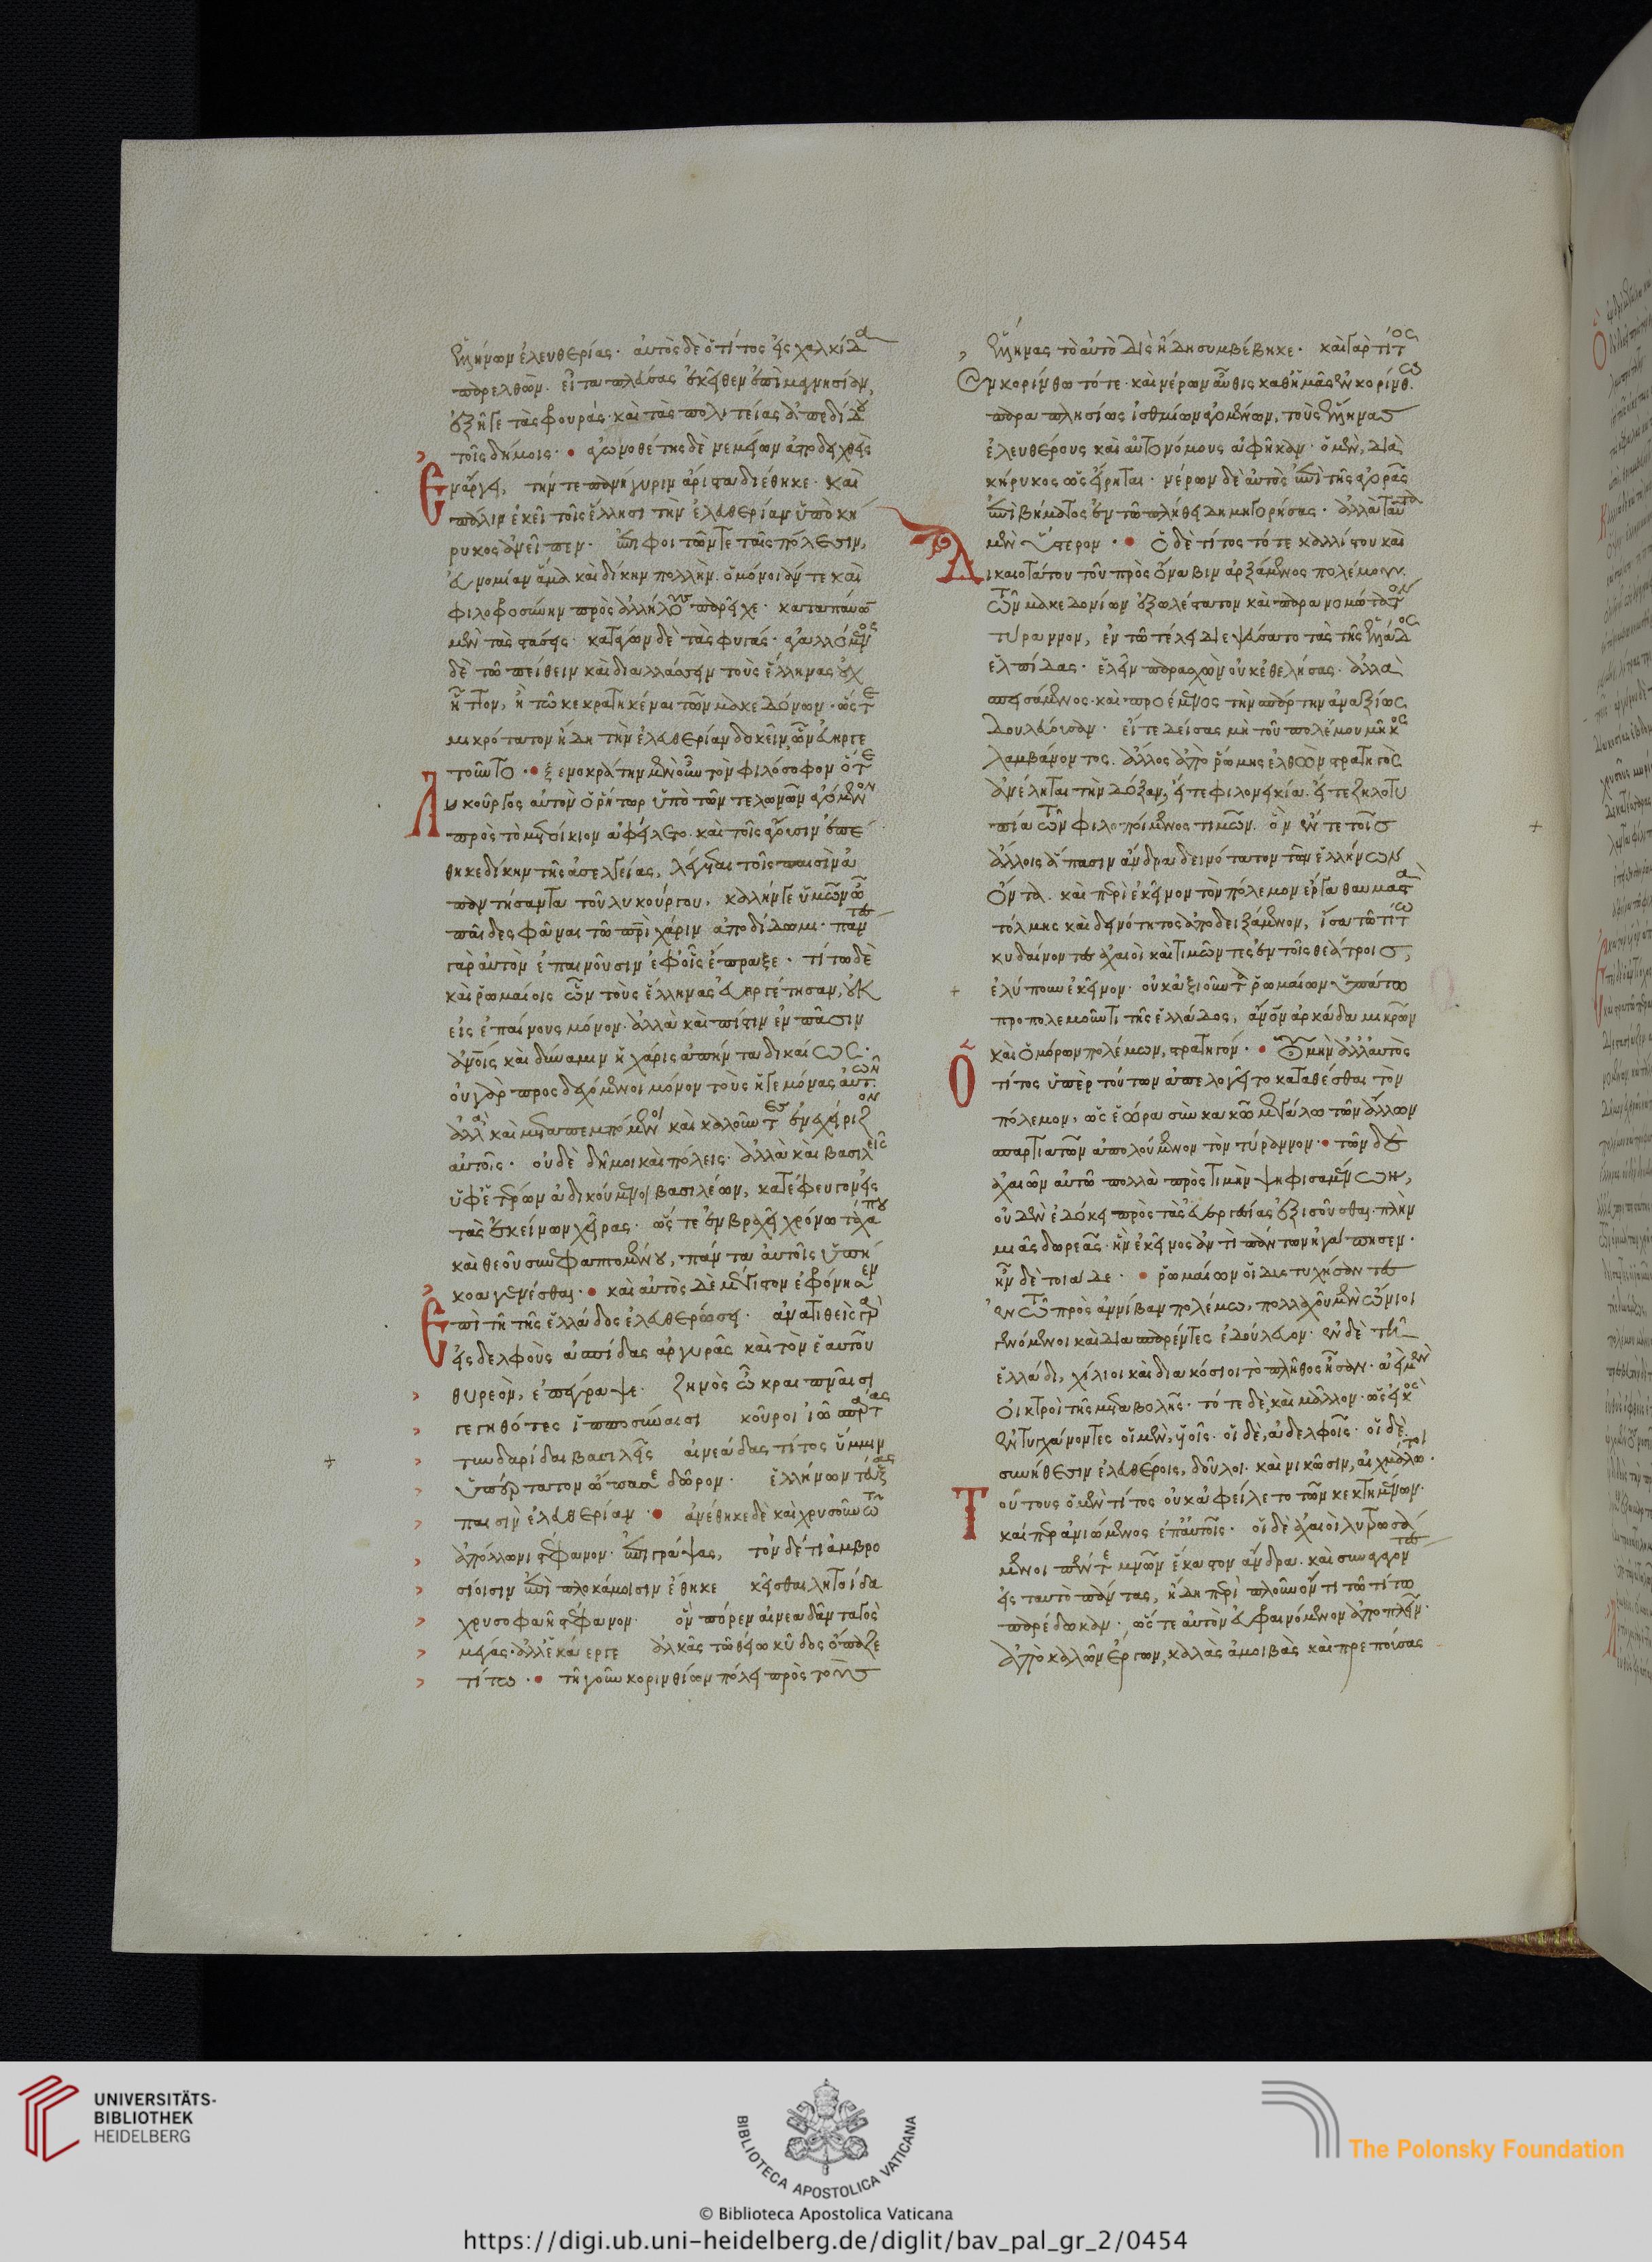 ἑλλήνων ἐλευθερίας· αὐτὸς δὲ ὁ τίτος εἰς χαλκίδα
παρελθὼν. εἶτα πλεύσας ἐκεῖθεν ἐπὶ μαγνησίαν,
ἐξῆγε τὰς φρουράς· καὶ τὰς πολιτείας ἀπεδίδου
τοῖς δήμοις· ἀγωνοθέτης δὲ νεμείων ἀποδειχθεὶς
ἐν ἄργει, τήν τε πανήγυριν ἄριστα διέθηκε· καὶ
πάλιν ἐκεῖ τοῖς ἕλλησι τὴν ἐλευθερίαν ὑπὸ κή
ρυκος ἀνεῖπεν· ἐπιφοιτῶν τε ταῖς πόλεσιν,
εὐνομίαν ἅμα καὶ δίκην πολλὴν. ὁμόνοιάν τε καὶ
φιλοφροσύνην πρὸς ἀλλήλους παρεῖχε· καταπαύων
μὲν τὰς στάσεις· κατάγων δὲ τὰς φυγάς· ἀγαλλόμενος
δὲ τῶ πείθειν καὶ διαλλάσσειν τοὺς ἕλληνας οὐχ
ἧττον, ἢ τῶ κεκρατηκέναι τῶν μακεδόνων· ὥστε
μικρότατον ἤδη τὴν ἐλευθερίαν δοκεῖν ὧν εὐηργε
τοῦντο· ξενοκράτην μὲν οὖν τὸν φιλόσοφον ὅτε
λυκοῦργος αὐτὸν ὁ ῥήτωρ ὑπὸ τῶν τελωνῶν ἀγόμενον
πρὸς τὸ μετοίκιον ἀφείλετο· καὶ τοῖς ἄγουσιν ἐπέ
θηκε δίκην τῆς ἀσελγείας, λέγεται τοῖς παισὶν ἀ
παντήσαντα τοῦ λυκούργου, καλήν γε ὑμῶν ὦ
παῖδες φάναι τῶ πατρὶ χάριν ἀποδίδωμι· πάντας
γὰρ αὐτὸν ἐπαινοῦσιν ἐφ' οἷς ἔπραξε· τίτω δὲ
καὶ ῥωμαίοις ὧν τοὺς ἕλληνας εὐεργέτησαν, οὐκ
εἰς ἐπαίνους μόνον· ἀλλὰ καὶ πίστιν ἐν πᾶσιν
ἀνθρώποις καὶ δύναμιν ἡ χάρις ἀπήντα δικαίως·
οὐ γὰρ προσδεχόμενοι μόνον τοὺς ἡγεμόνας αὐτῶν·
ἀλλὰ καὶ μεταπεμπόμενοι καὶ καλοῦντες ἐνεχείριζον
αὐτοῖς· οὐδὲ δῆμοι καὶ πόλεις· ἀλλὰ καὶ βασιλεῖς
ὑφ' ἑτέρων ἀδικούμενοι βασιλέων, κατέφευγον εἰς
τὰς ἐκείνων χεῖρας· ὥστε ἐν βραχεῖ χρόνω τάχα που
καὶ θεοῦ συνεφαπτομένου, πάντα αὐτοῖς ὑπή
κοα γενέσθαι· καὶ αὐτὸς δὲ μέγιστον ἐφρόνησεν
ἐπὶ τῆ τῆς ἑλλάδος ἐλευθερώσει· ἀνατιθεὶς γὰρ
εἰς δελφοὺς ἀσπίδας ἀργυρᾶς καὶ τὸν ἑαυτοῦ
θυρεὸν, ἐπέγραψε· ζηνὸς ὦ κραιπναῖσι
γεγηθότες ἱπποσύναισι κοῦροι ἰὼ σπάρτας
τυνδαρίδαι βασιλεῖς αἰνεάδας τίτος ὕμμιν
ὑπέρτατον ὤπασε δῶρον· ἑλλήνων τεύξας
παισὶν ἐλευθερίαν· ἀνέθηκε δὲ καὶ χρυσοῦν τῶ
ἀπόλλωνι στέφανον· ἐπιγράψας, τόνδε τι ἀμβρο
σίοισιν ἐπὶ πλοκάμοισιν ἔθηκε κεῖσθαι λητοίδα
χρυσοφαῆ στέφανον· ὃν πόρεν αἰνεαδᾶν ταγὸς
μέγας· ἀλλ' ἑκάεργε ἀλκᾶς τῶ θείω κῦδος ὄπαζε
τίτω· τῆ γοῦν κορινθίων πόλει πρὸς τοὺς
ἕλληνας τὸ αὐτὸ δὶς ἤδη συμβέβηκε· καὶ γὰρ τίτος
ἐν κορίνθω τότε· καὶ νέρων αὖθις καθ' ἡμᾶς ἐν κορίνθω·
παραπλησίως ἰσθμίων ἀγομένων, τοὺς ἕλληνας
ἐλευθέρους καὶ αὐτονόμους ἀφῆκαν· ὁ μὲν, διὰ
κήρυκος ὡς εἴρηται· νέρων δὲ αὐτὸς ἐπὶ τῆς ἀγορᾶς
ἐπὶ βήματος ἐν τῶ πλήθει δημηγορήσας· ἀλλὰ ταῦτα
μὲν ὕστερον· ὁ δὲ τίτος τότε καλλίστου καὶ
δικαιοτάτου τοῦ πρὸς νάβιν ἀρξάμενος πολέμου·
τῶν λακεδαιμονίων ἐξωλέστατον καὶ παρανομώτατον
τύραννον, ἐν τῶ τέλει διεψεύσατο τὰς τῆς ἑλλάδος
ἐλπίδας· ἑλεῖν παρασχὸν οὐκ ἐθελήσας· ἀλλὰ
σπεισάμενος· καὶ προέμενος τὴν σπάρτην ἀναξίως
δουλεύουσαν· εἴτε δείσας μὴ τοῦ πολέμου μῆκος
λαμβάνοντος. ἄλλος ἀπὸ ῥώμης ἐλθὼν στρατηγὸς
ἀνέληται τὴν δόξαν, εἴτε φιλονεικία. εἴτε ζηλοτυ
πία τῶν φιλοποίμενος τιμῶν. ὃν ἔν τε τοῖς
ἄλλοις ἅπασιν ἄνδρα δεινότατον τῶν ἑλλήνων
ὄντα. καὶ περὶ ἐκεῖνον τὸν πόλεμον ἔργα θαυμαστὰ
τόλμης καὶ δεινότητος ἀποδειξάμενον, ἴσα τῶ τίτω
κυδαίνοντες ἀχαιοὶ καὶ τιμῶντες ἐν τοῖς θεάτροις,
ἐλύπουν ἐκεῖνον· οὐκ ἀξιοῦντα ῥωμαίων ὑπάτω
προπολεμοῦντι τῆς ἑλλάδος, ἄνθρωπον ἀρκάδα μικρῶν
καὶ ὁμόρων πολέμων, στρατηγόν· οὐ μὴν ἀλλ' αὐτὸς
ὁ τίτος ὑπὲρ τούτων ἀπελογεῖτο καταθέσθαι τὸν
πόλεμον, ὡς ἑώρα σὺν κακῶ μεγάλω τῶν ἄλλων
σπαρτιατῶν ἀπολούμενον τὸν τύραννον· τῶν δὲ
ἀχαιῶν αὐτῶ πολλὰ πρὸς τιμὴν ψηφισαμένων,
οὐδὲν ἐδόκει πρὸς τὰς εὐεργεσίας ἐξισοῦσθαι· πλὴν
μιᾶς δωρεᾶς· ἣν ἐκεῖνος ἀντὶ πάντων ἠγάπησεν·
ἦν δὲ τοιάδε· ῥωμαίων οἱ δυστυχήσαντες
ἐν τῶ πρὸς ἀννίβαν πολέμω, πολλαχοῦ μὲν ὤνιοι
γενόμενοι καὶ διασπαρέντες ἐδούλευον· ἐν δὲ τῆ
ἑλλάδι, χίλιοι καὶ διακόσιοι τὸ πλῆθος ἦσαν· ἀεὶ μὲν
οἰκτροὶ τῆς μεταβολῆς· τότε δὲ καὶ μᾶλλον· ὡς εἰκὸς
ἐντυγχάνοντες οἱ μὲν, υἱοῖς· οἱ δὲ, ἀδελφοῖς· οἱ δὲ
συνήθεσιν ἐλευθέροις, δοῦλοι· καὶ νικῶσιν, αἰχμάλωτοι·
τούτους ὁ μὲν τίτος οὐκ ἀφείλετο τῶν κεκτημένων·
καίπερ ἀνιώμενος ἐπ' αὐτοῖς· οἱ δὲ ἀχαιοὶ λυτρωσά
μενοι πέντε μνῶν ἕκαστον ἄνδρα· καὶ συναγαγόντες
εἰς ταυτὸ πάντας, ἤδη περὶ πλοῦν ὄντι τῶ τίτω
παρέδωκαν· ὥστε αὐτὸν εὐφραινόμενον ἀποπλεῖν·
ἀπὸ καλῶν ἔργων, καλὰς ἀμοιβὰς καὶ πρεπούσας
UNIVERSITÄTS-
BIBLIOTHEK
HEIDELBERG
BIBLIOTECA APOSTOLICA VATICANA
The Polonsky Foundation
© Biblioteca Apostolica Vaticana
https://digi.ub.uni-heidelberg.de/diglit/bav_pal_gr_2/0454